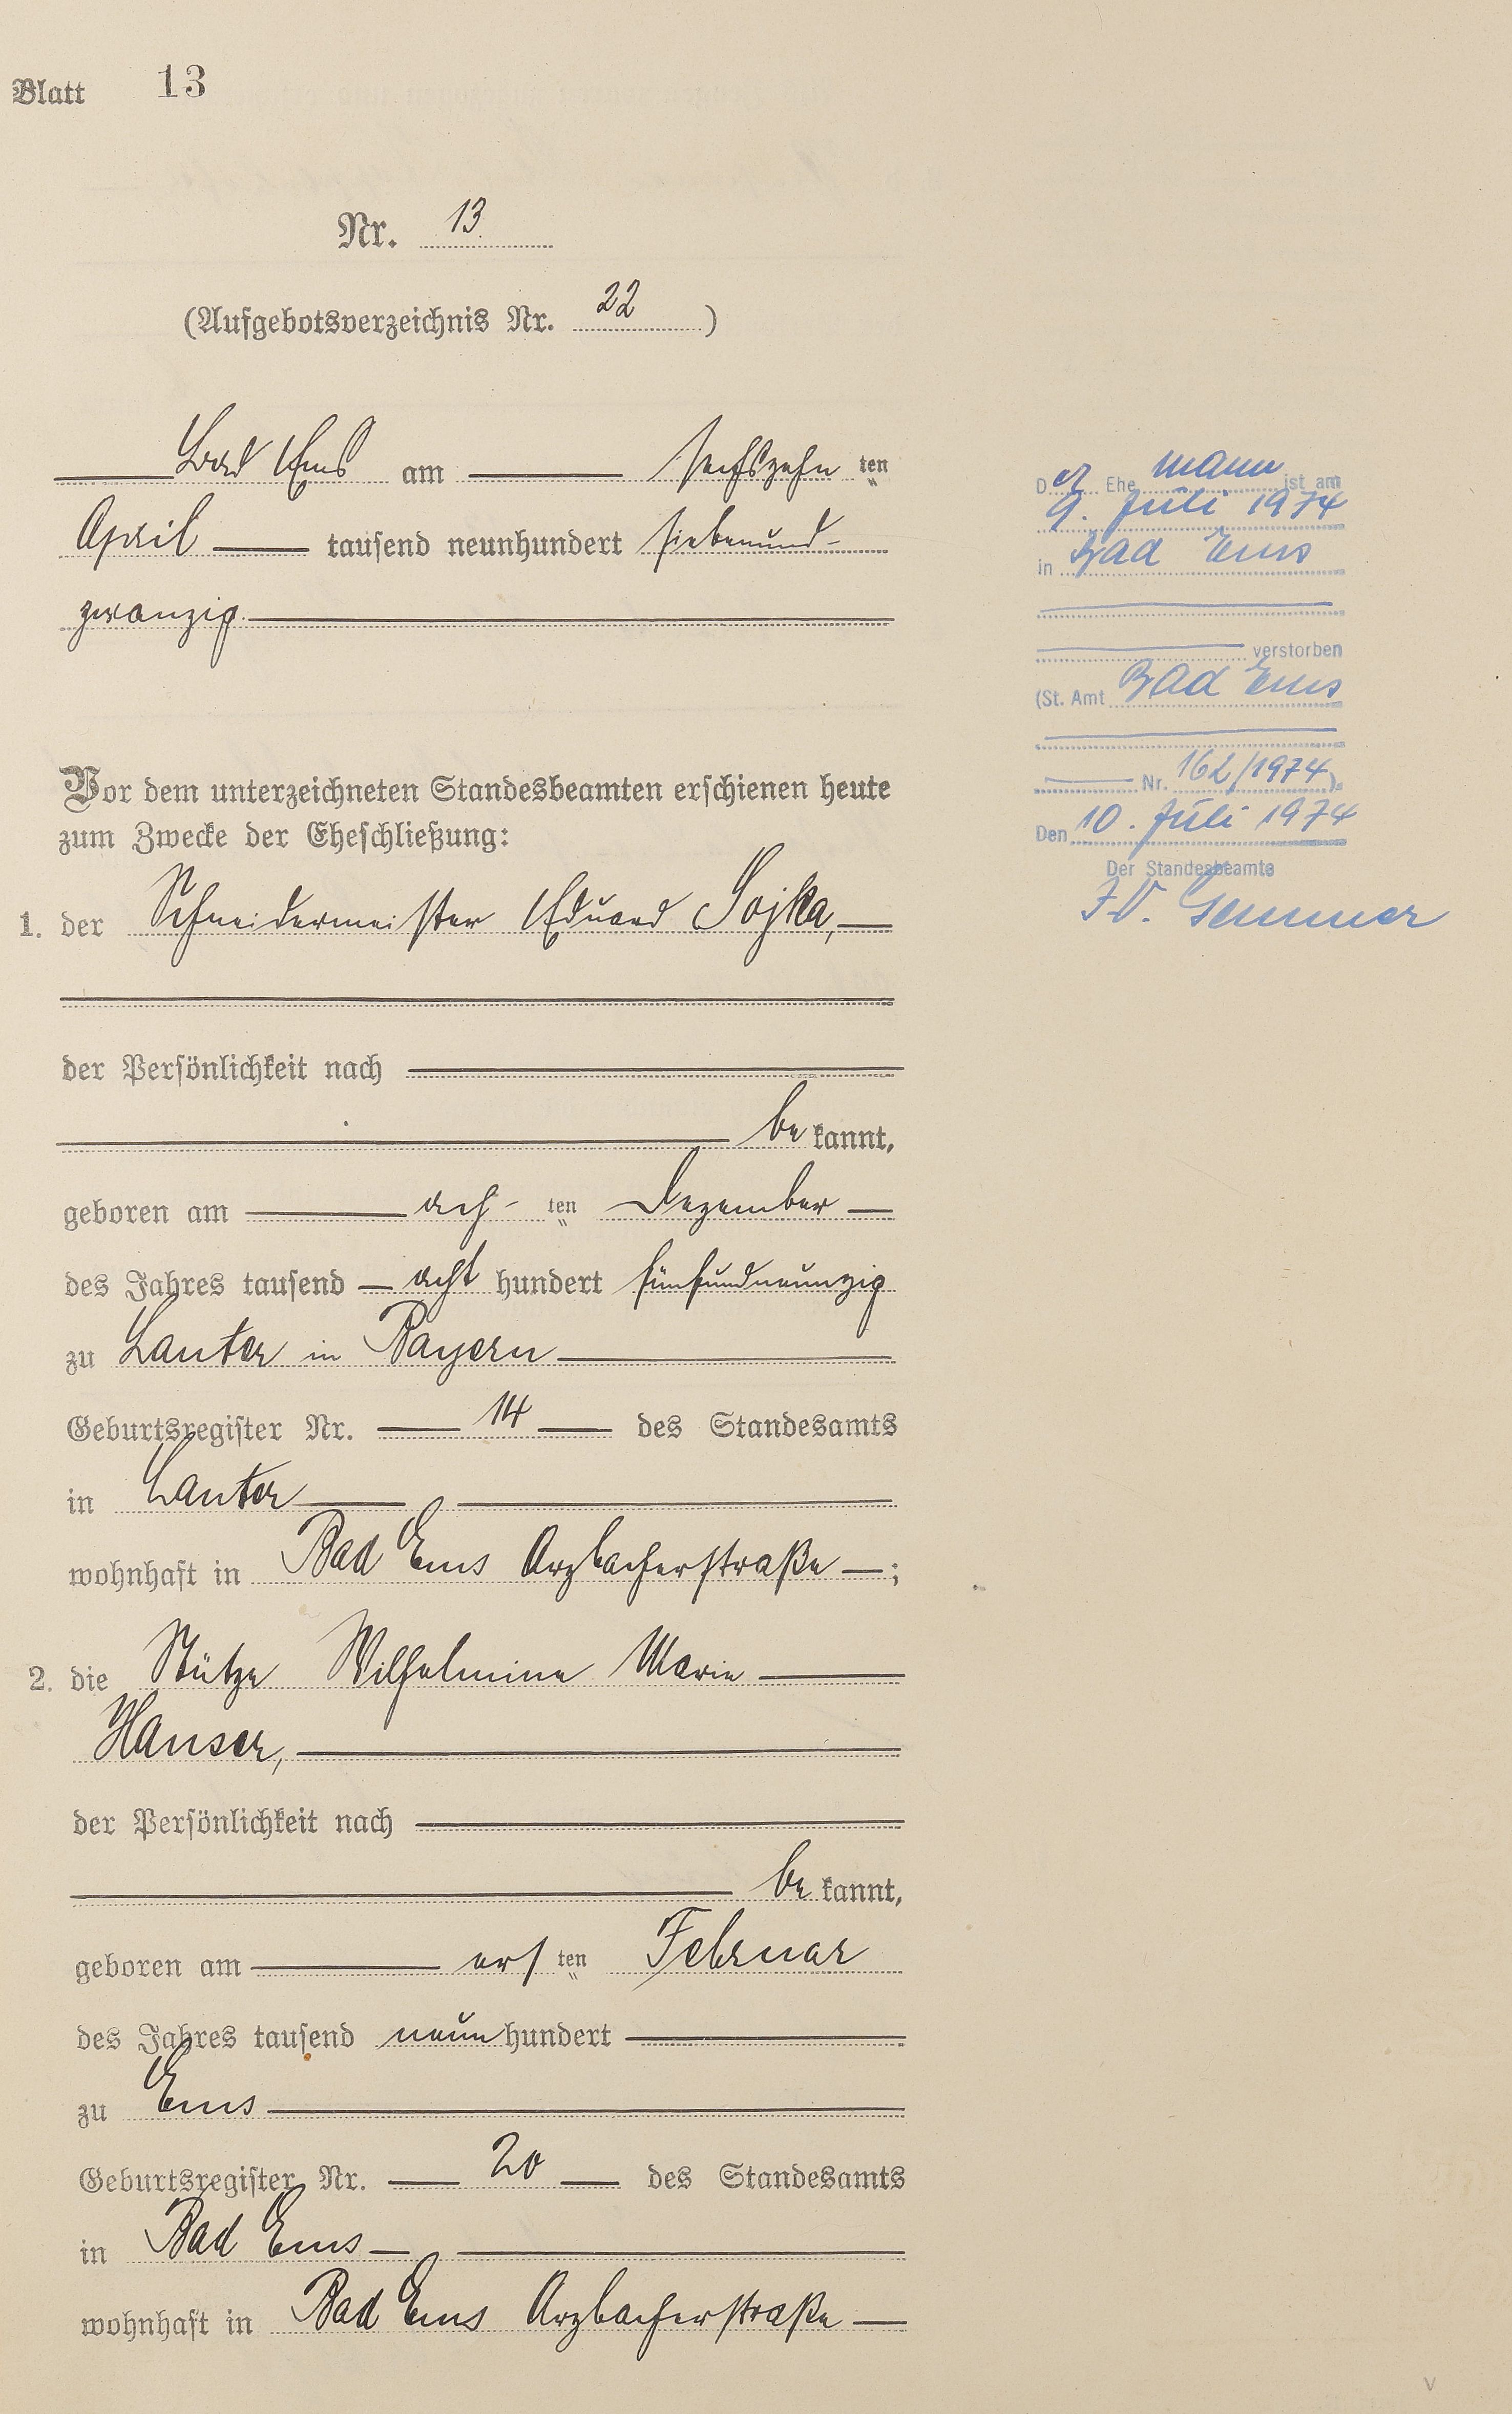 Blatt 13
Nr. 13.
(Aufgebotsverzeichnis Nr. 22 )
Bad Ems am sechszehn ten
April tausend neunhundert siebenund-
zwanzig.
Vor dem unterzeichneten Standesbeamten erschienen heute
zum Zwecke der Eheschließung:
1. der Schneidermeister Eduard Sojka,
der Persönlichkeit nach
be kannt,
geboren am ach- ten Dezember
des Jahres tausend acht hundert fünfundneunzig
zu Lauter in Bayern
Geburtsregister Nr. 14 des Standesamts
in Lauter
wohnhaft in Bad Ems Arzbacherstraße ;
2. die Stütze Wilhelmine Marie
Hauser,
der Persönlichkeit nach
be kannt,
geboren am ers ten Februar
des Jahres tausend neun hundert
zu Ems
Geburtsregister Nr. 20 des Standesamts
in Bad Ems
wohnhaft in Bad Ems Arzbacherstraße
D er Ehe mann ist am
9. Juli 1974
in Bad Ems
verstorben
(St. Amt Bad Ems
Nr. 162/1974).
Den 10. Juli 1974
Der Standesbeamte
I.V.